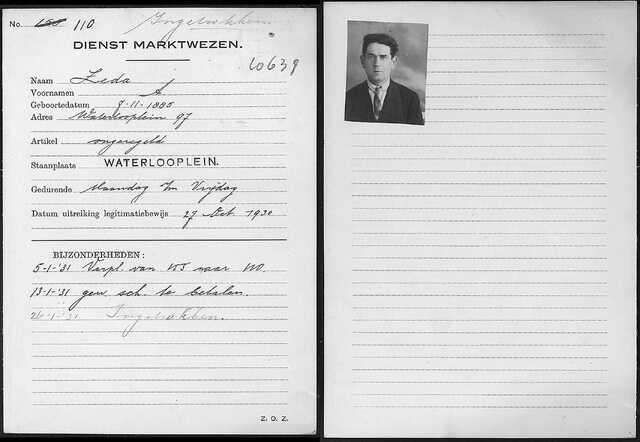 No. 150 110 Ingetrokken.
DIENST MARKTWEZEN.
60639
Naam Leda
Voornamen A.
Geboortedatum 7-11-1885
Adres Waterlooplein 97
Artikel ongeregeld
Staanplaats WATERLOOPLEIN.
Gedurende Maandag t/m Vrijdag
Datum uitreiking legitimatiebewijs 27 Oct. 1930
BIJZONDERHEDEN:
5-1-'31 Verpl. van 157 naar 110.
13-1-'31 gew. sch. te betalen.
26-1-'31 Ingetrokken.
Z. O. Z.